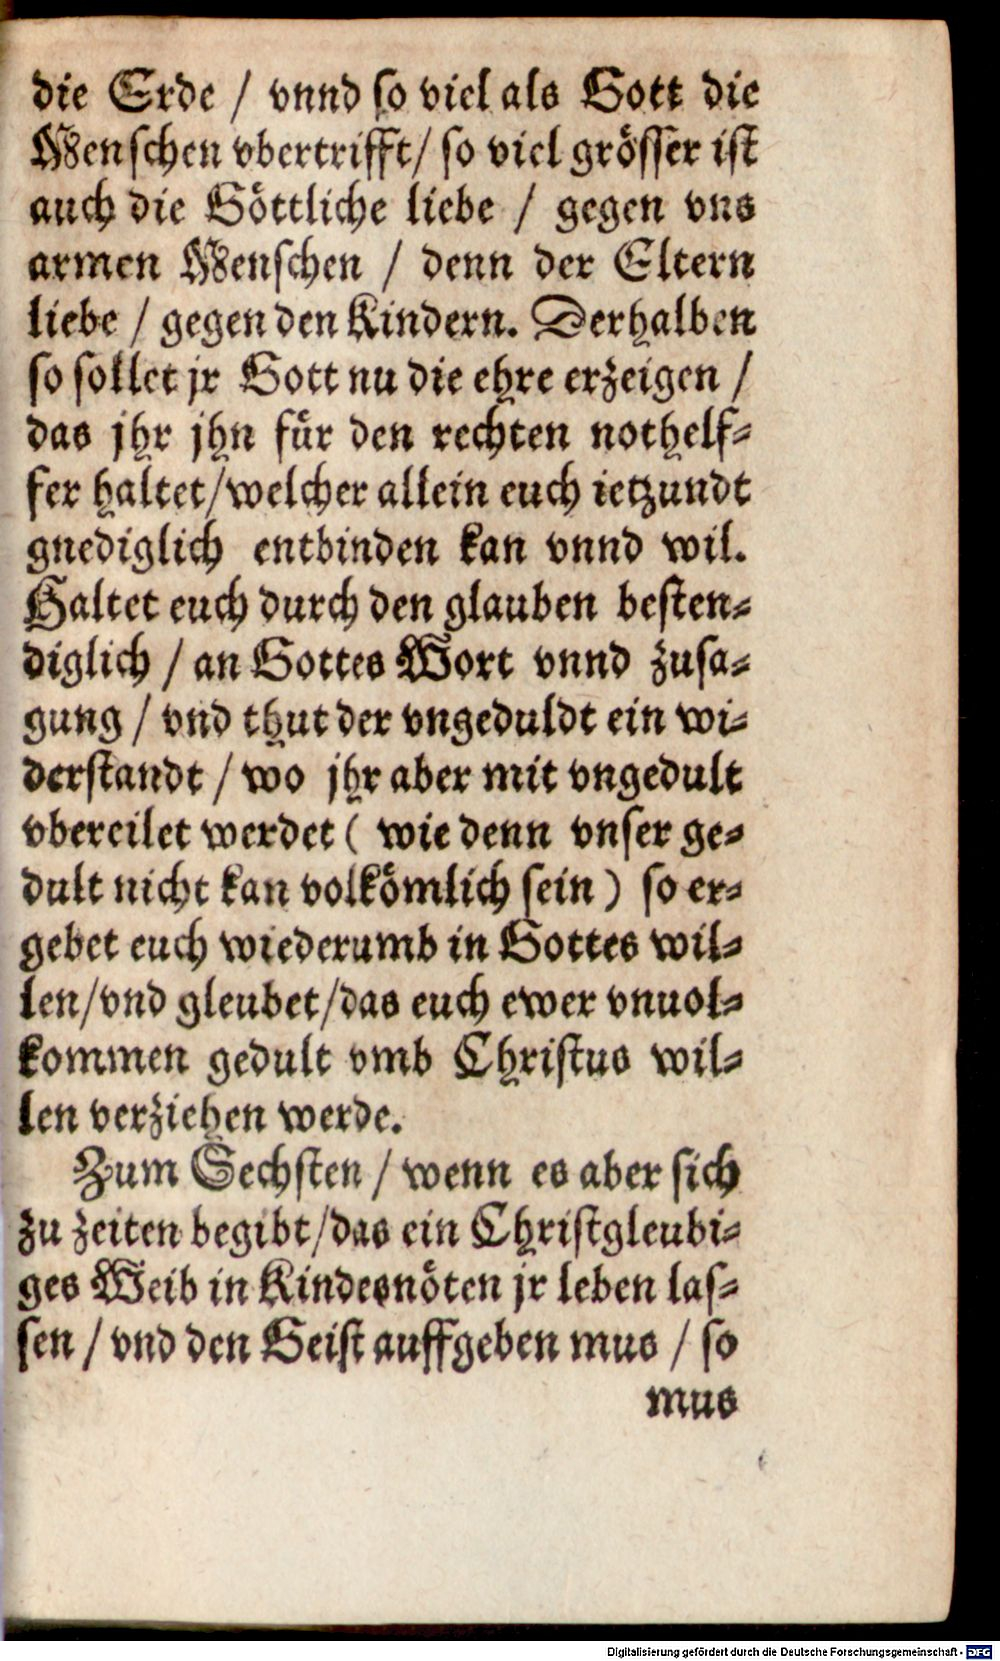 die Erde / vnnd so viel als Gott die
Menschen vbertrifft/ so viel grösser ist
auch die Göttliche liebe / gegen vns
armen Menschen / denn der Eltern
liebe / gegen den Kindern. Derhalben
so sollet jr Gott nu die ehre erzeigen /
das jhr jhn für den rechten nothelf-
fer haltet/welcher allein euch ietzundt
gnediglich entbinden kan vnnd wil.
Haltet euch durch den glauben besten-
diglich / an Gottes Wort vnnd zusa-
gung / vnd thut der vngeduldt ein wi-
derstandt / wo jhr aber mit vngedult
vbereilet werdet ( wie denn vnser ge-
dult nicht kan volkömlich sein ) so er-
gebet euch wiederumb in Gottes wil-
len/vnd gleubet/das euch ewer vnuol-
kommen gedult vmb Christus wil-
len verziehen werde.
Zum Sechsten / wenn es aber sich
zu zeiten begibt/das ein Christgleubi-
ges Weib in Kindesnöten jr leben las-
sen / vnd den Geist auffgeben mus / so
mus
Digitalisierung gefördert durch die Deutsche Forschungsgemeinschaft - DFG